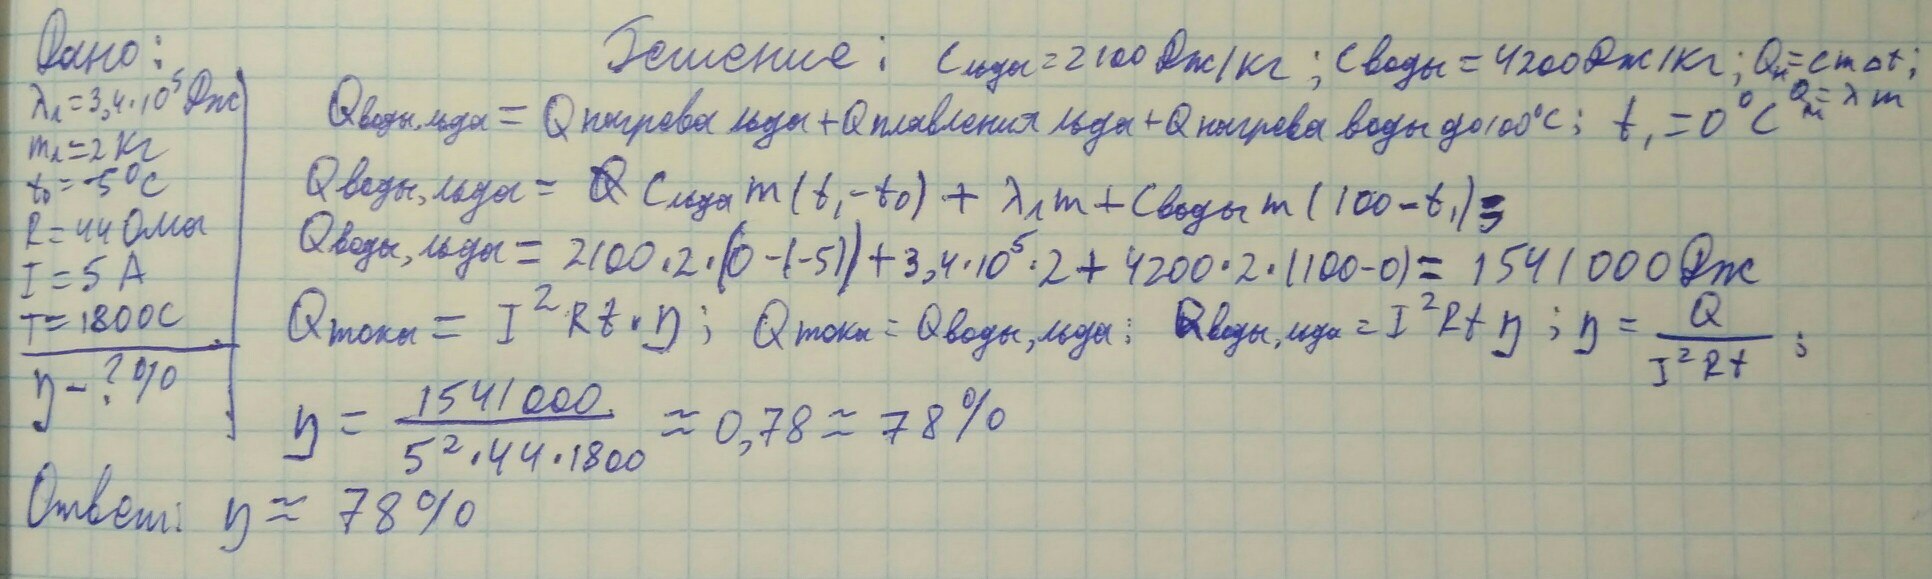 Дано:
λл=3,4·10⁵ Дж
mл=2 кг
t₀=-5⁰C
R=44 Ома
I=5 A
T=1800C
η-?%
Решение: Cльда=2100 Дж/кг; Cводы=4200 Дж/кг; Qн=cmΔt;
Qводы,льда=Qнагрева льда+Qплавления льда+Qнагрева воды до 100°C; t₁=0⁰C Qпл=λm
Qводы,льда= Cльда m(t₁-t₀)+λл m+Cводы m(100-t₁)=
Qводы,льда=2100·2·(0-(-5))+3,4·10⁵·2+4200·2·(100-0)=1541000 Дж
Qтока=I²Rt·η; Qтока=Qводы,льда; Qводы,льда=I²Rtη; η=Q/I²Rt;
η=1541000/5²·44·1800≈0,78≈78%
Ответ: η≈78%